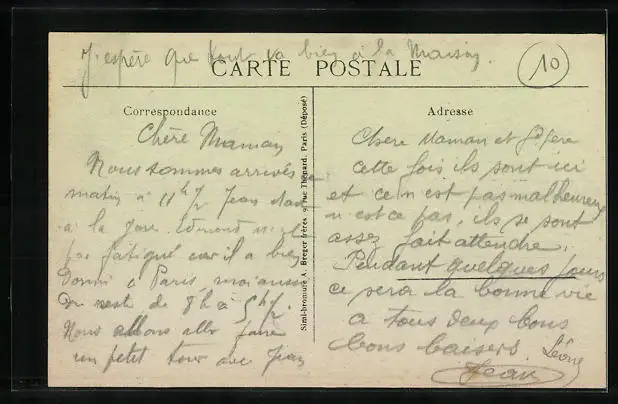 J'espère que tout va bien à la Maison.
10
CARTE POSTALE
Correspondance
Chère Maman
Nous sommes arrivés ce
matin à 11h½ Jean était
à la gare. n'est
pas fatigué car il a bien
dormi à Paris, moi aussi
on reste de 8h à 5h½.
Nous allons aller faire
un petit tour avec Jean
Simi-bromure A. Breger frères 9, rue Thénard, Paris (Déposé)
Adresse
Chere Maman et
cette fois ils sont ici
et ce n est pas malheureux
n est ce pas, ils se sont
assez fait attendre.
Pendant quelques jours
ce sera la bonne vie
a tous deux bons
bons baisers. Léone
Jean